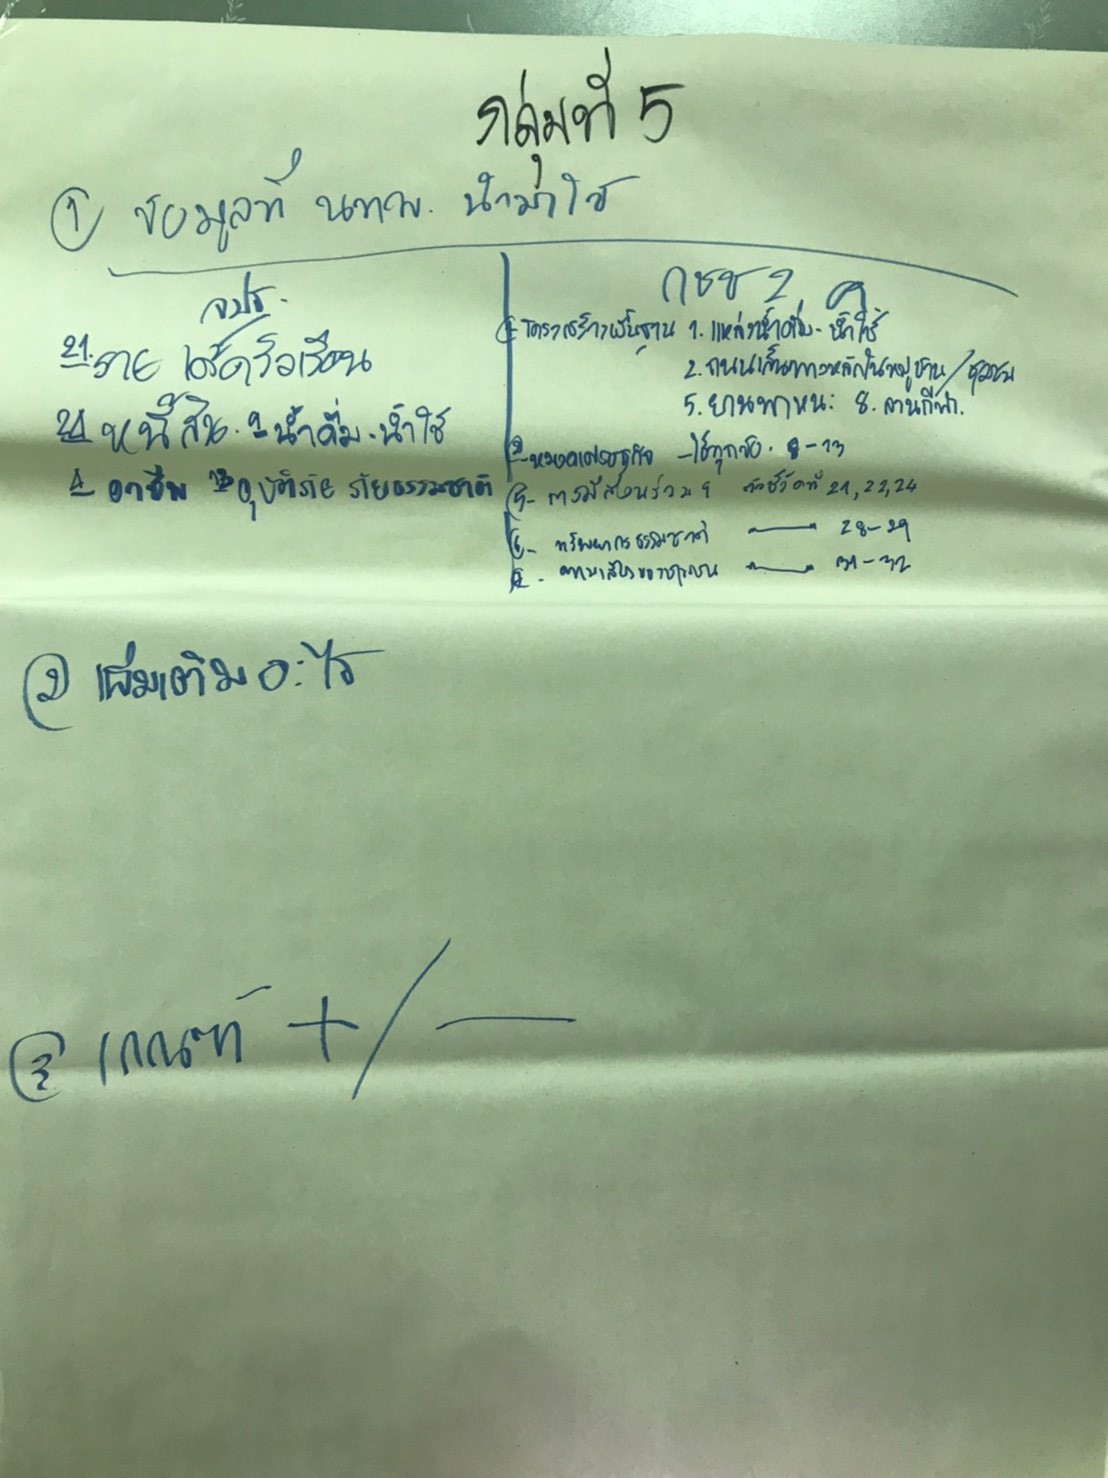 กลุ่มที่ 5
① ข้อมูลที่ นทพ. นำมาใช้
จปฐ.
21. รายได้ครัวเรือน
หนี้สิน. น้ำดื่ม - น้ำใช้
อาชีพ อุบัติภัย ภัยธรรมชาติ
กชช 2 ค
โครงสร้างพื้นฐาน 1. แหล่งน้ำดื่ม - น้ำใช้
2. ถนนเส้นทางหลักในหมู่บ้าน/ชุมชน
5. ยานพาหนะ 8. ลานกีฬา.
หมวดเศรษฐกิจ - ใช้ทุกข้อ. 8-13
การมีส่วนร่วมฯ ตัวชี้วัดที่ 21, 22, 24
ทรัพยากรธรรมชาติ 28-29
31-32
② เพิ่มเติมอะไร
③ เกณฑ์ +/-